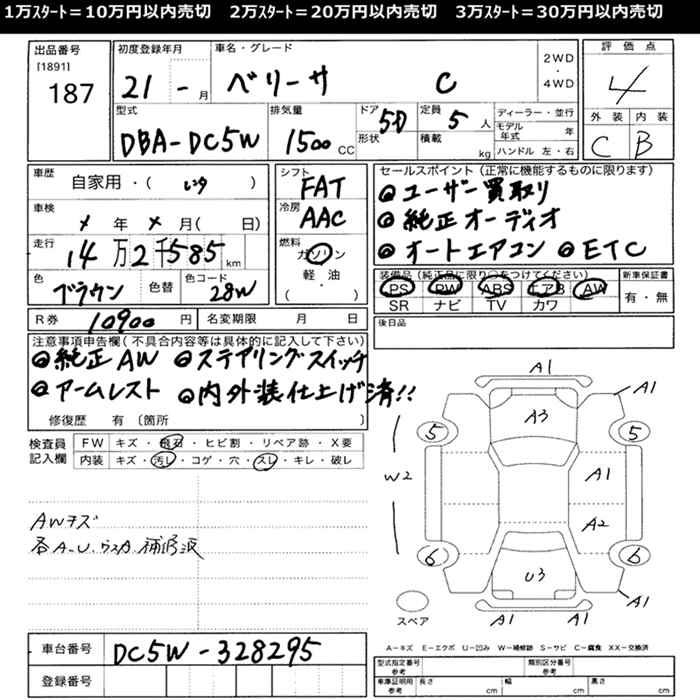 1万ｽﾀｰﾄ＝10万円以内売切　2万ｽﾀｰﾄ＝20万円以内売切　3万ｽﾀｰﾄ＝30万円以内売切
出品番号
[1891]
187
初度登録年月
21 - 月
車名・グレード
ベリーサ C
2WD
・
4WD
評価点
4
外装 内装
C B
型式
DBA-DC5W
排気量
1500 CC
ドア 5D
形状
定員 5 人
積載 kg
ディーラー・並行
モデル年式 年
ハンドル 左・右
車歴
自家用・( )
車検
メ 年 メ 月( 日)
走行
14万2千585 km
色
ブラウン
色替
色コード
28W
シフト
FAT
冷房
AAC
燃料
ガソリン
軽・油
( ・ )
セールスポイント(正常に機能するものに限ります)
●ユーザー買取り
●純正オーディオ
●オートエアコン ●ETC
装備品(純正品に限り○をつけてください)
PS PW ABS エアB AW
SR ナビ TV カワ
新車保証書
有・無
R券 10900 円
名変期限 月 日
後日品
注意事項申告欄(不具合内容等は具体的に記入して下さい)
●純正AW ●ステアリングスイッチ
●アームレスト ●内外装仕上げ済!!
修復歴 有〔箇所 〕
検査員
記入欄
FW キズ・飛石・ヒビ割・リペア跡・X要
内装 キズ・汚レ・コゲ・穴・スレ・キレ・破レ
AWキズ
各A.U.
A1
A1
A3
5
5
W2
A1
A2
6
6
U3
A1
A1
A1
スペア
A－キズ E－エクボ U－凹み W－補修跡 S－サビ C－腐食 XX－交換済
車台番号
DC5W-328295
登録番号
型式指定番号
参考
類別区分番号
参考
車庫証明用
参考
長さ cm
幅 cm
高さ cm